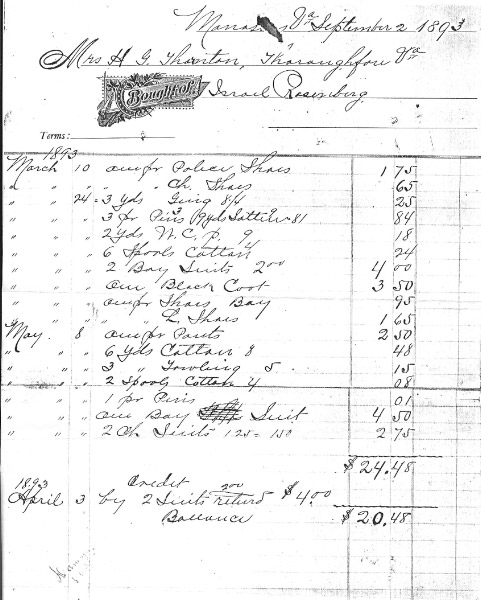 Manassas Va September 2 1893
Mrs H. G. Thornton, Thoroughfare Va
Bought of Israel Rosenberg
Terms:
1893
March 10 one pr Police Shoes 1 75
" " " " Ch. Shoes 65
" " 24 = 3 yds Ging 8 1/3 25
" " " 3 pr Pins 3 9 yds Satteen 81 84
" " " 2 yds W. C. p. 9 18
" " " 6 Spools Cotton 4 24
" " " 2 Boy Suits 2 00 4 00
" " " one Black Coat 3 50
" " " one pr Shoes Boy 95
" " " " " L. Shoes 1 65
May 8 one pr Pants 2 50
" " " 6 yds Cotton 8 48
" " " 3 " Toweling 5 . 15
" " " 2 Spools Cotton 4 08
" " " 1 pr Pins 01
" " " one Boy Suit 4 50
" " " 2 Ch Suits 125 = 150 2 75
$ 24.48
1893 Credit
April 3 by 2 Suits 2 00 returd $4.00
Ballance $ 20.48